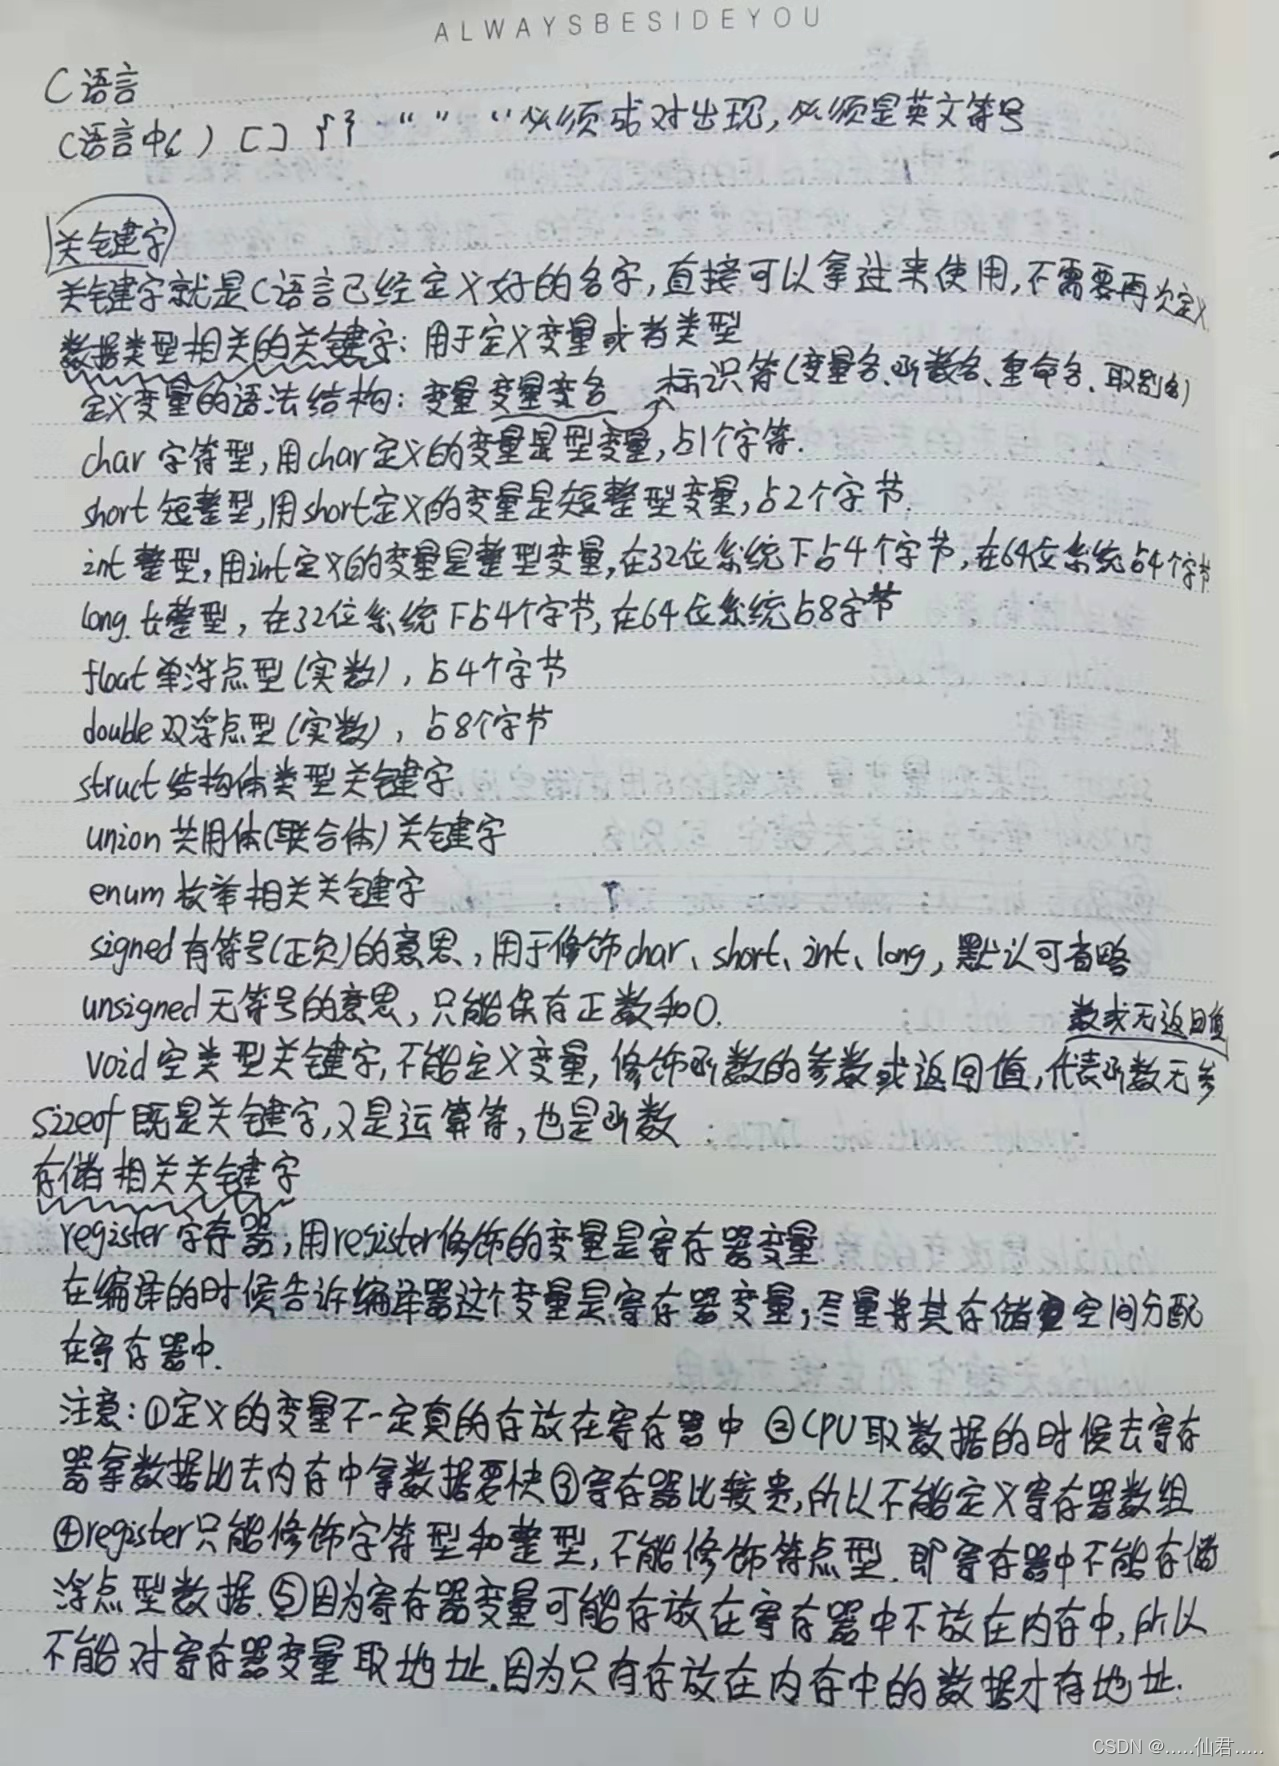 ALWAYSBESIDEYOU
C语言
C语言中( ) [ ] { } “ ” “必须成对出现,必须是英文符号
关键字
关键字就是C语言已经定义好的名字,直接可以拿过来使用,不需要再次定义
数据类型相关的关键字:用于定义变量或者类型
定义变量的语法结构:变量 变量变名 标识符(变量名、函数名、重命名、取别名)
char 字符型,用char定义的变量是型变量,占1个字符.
short 短整型,用short定义的变量是短整型变量,占2个字节.
int 整型,用int定义的变量是整型变量,在32位系统下占4个字节,在64位系统占4个字节
long 长整型,在32位系统下占4个字节,在64位系统占8字节
float 单浮点型(实数),占4个字节
double 双浮点型(实数),占8个字节
struct 结构体类型关键字
union 共用体(联合体)关键字
enum 枚举相关关键字
signed 有符号(正负)的意思,用于修饰char、short、int、long,默认可省略
unsigned 无符号的意思,只能保存正数和0.
数或无返回值
void 空类型关键字,不能定义变量,修饰函数的参数或返回值,代表函数无参
sizeof 既是关键字,又是运算符,也是函数
存储相关关键字
register 字存器,用register修饰的变量是寄存器变量
在编译的时候告诉编译器这个变量是寄存器变量,尽量将其存储空间分配
在寄存器中.
注意:①定义的变量不一定真的存放在寄存器中 ②CPU取数据的时候去寄存
器拿数据比去内存中拿数据要快③寄存器比较贵,所以不能定义寄存器数组
④register只能修饰字符型和整型,不能修饰符点型.即寄存器中不能存储
浮点型数据.⑤因为寄存器变量可能存放在寄存器中不放在内存中,所以
不能对寄存器变量取地址.因为只有存放在内存中的数据才存地址.
CSDN @.....仙君.....